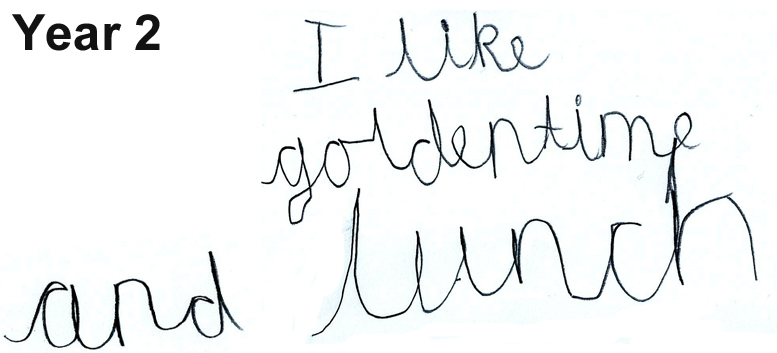 Year 2
I like
goldentime
and lunch